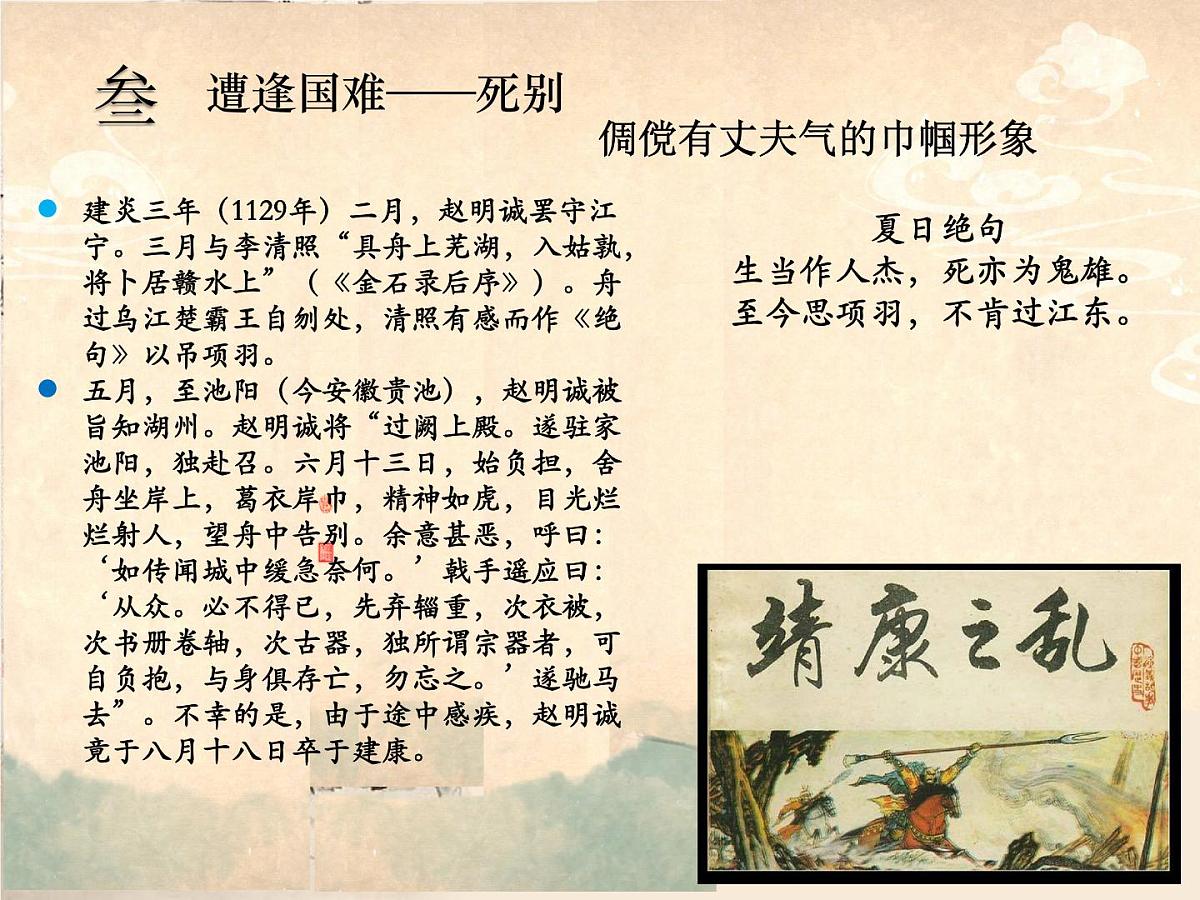 叁 遭逢国难——死别
倜傥有丈夫气的巾帼形象
建炎三年（1129年）二月，赵明诚罢守江
宁。三月与李清照“具舟上芜湖，入姑孰，
将卜居赣水上”（《金石录后序》）。舟
过乌江楚霸王自刎处，清照有感而作《绝
句》以吊项羽。
五月，至池阳（今安徽贵池），赵明诚被
旨知湖州。赵明诚将“过阙上殿。遂驻家
池阳，独赴召。六月十三日，始负担，舍
舟坐岸上，葛衣岸巾，精神如虎，目光烂
烂射人，望舟中告别。余意甚恶，呼曰：
‘如传闻城中缓急奈何。’戟手遥应曰：
‘从众。必不得已，先弃辎重，次衣被，
次书册卷轴，次古器，独所谓宗器者，可
自负抱，与身俱存亡，勿忘之。’遂驰马
去”。不幸的是，由于途中感疾，赵明诚
竟于八月十八日卒于建康。
夏日绝句
生当作人杰，死亦为鬼雄。
至今思项羽，不肯过江东。
靖康之乱